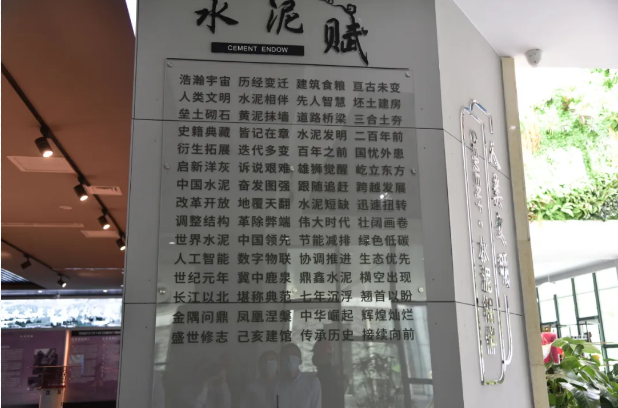 水泥赋
CEMENT ENDOW
浩瀚宇宙 历经变迁 建筑食粮 亘古未变
人类文明 水泥相伴 先人智慧 坯土建房
垒土砌石 黄泥抹墙 道路桥梁 三合土夯
史籍典藏 皆记在章 水泥发明 二百年前
衍生拓展 迭代多变 百年之前 国忧外患
启新洋灰 诉说艰难 雄狮觉醒 屹立东方
中国水泥 奋发图强 跟随追赶 跨越发展
改革开放 地覆天翻 水泥短缺 迅速扭转
调整结构 革除弊端 伟大时代 壮阔画卷
世界水泥 中国领先 节能减排 绿色低碳
人工智能 数字物联 协调推进 生态优先
世纪元年 冀中鹿泉 鼎鑫水泥 横空出现
长江以北 堪称典范 七年沉浮 翘首以盼
金隅问鼎 凤凰涅槃 中华崛起 辉煌灿烂
盛世修志 己亥建馆 传承历史 接续向前